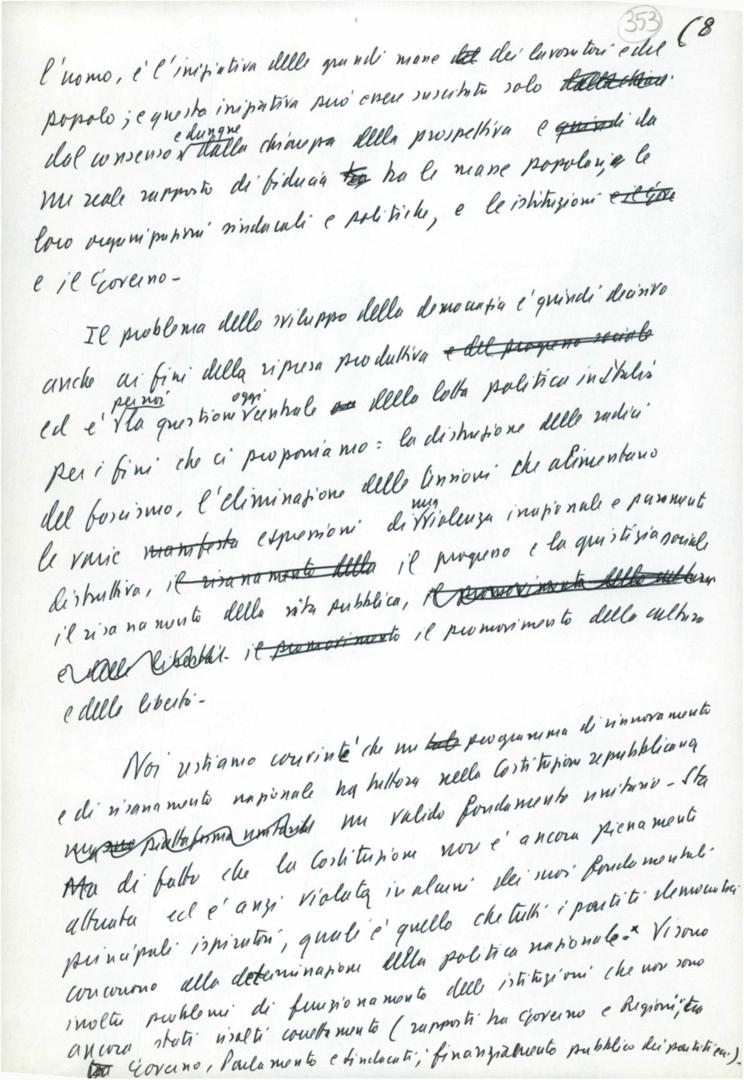 353
(8
l'uomo, è l'iniziativa delle grandi masse dei lavoratori e del
popolo; e questa iniziativa può essere suscitata solo dalla chiar.
e dunque
dal consenso dalla chiarezza della prospettiva e quindi da
un reale rapporto di fiducia tra tra le masse popolari, e le
loro organizzazioni sindacali e politiche, e le istituzioni e il Gove
e il Governo -
Il problema dello sviluppo della democrazia è quindi decisivo
anche ai fini della ripresa produttiva e del progresso sociale
per noi oggi
ed è la questione centrale della lotta politica in Italia
per i fini che ci proponiamo: la distruzione delle radici
del fascismo, l'eliminazione delle tensioni che alimentano
una
le varie manifesta espressioni di violenza irrazionale e puramente
distruttiva, il risanamento della il progresso e la giustizia sociale,
il risanamento della vita pubblica, il promovimento della cultura
e delle libertà - il promovimento il promovimento della cultura
e delle libertà -
Noi restiamo convinti che un programma di rinnovamento
e di risanamento nazionale ha tuttora nella Costituzione repubblicana
una sua piattaforma unitaria un valido fondamento unitario - Sta
Ma di fatto che la Costituzione non è ancora pienamente
attuata ed è anzi violata in alcuni dei suoi fondamentali
principali ispiratori, quale è quello che tutti i partiti democratici
concorrono alla determinazione della politica nazionale.x Vi sono
inoltre problemi di funzionamento delle istituzioni che non sono
ancora stati risolti correttamente (rapporti tra Governo e Regioni, tra
tra Governo, Parlamento e sindacati; finanziamento pubblico dei partiti ecc.).